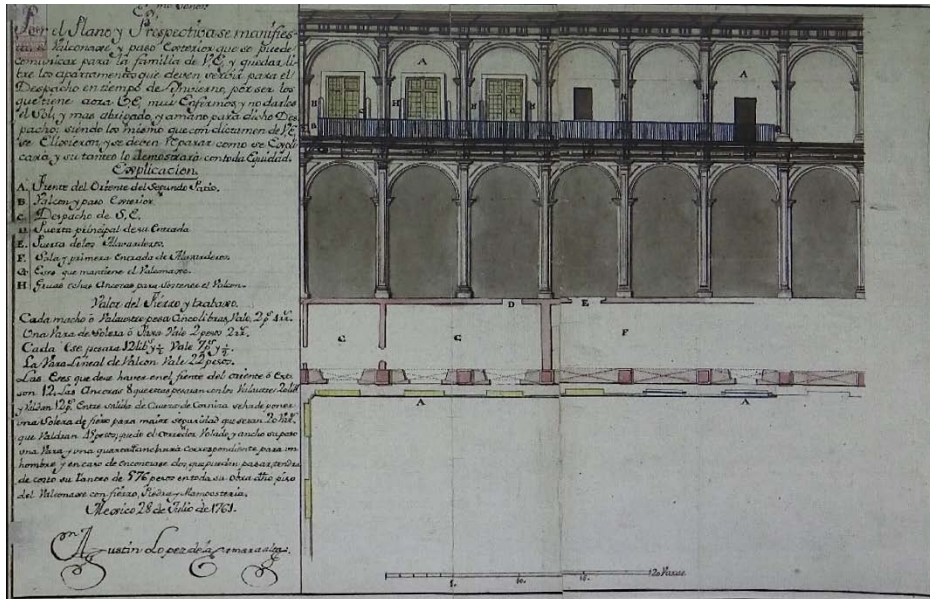 Ex.mo Señor
Por el Plano y Prespectiva se manifies-
ta el Valconage, y paso Exterior que se puede
comunicar para la familia de V.E. y quedar li-
bre los apartamentos que deven servir para el
Despacho en tiempo de Ynvierno, por ser los
que tiene aora V.E. mui Enfermos, y no darles
el Sol, y mas abrigado, y amano para dicho Des
pacho; siendo los mismo que con dictamen de V.E.
se Elixieron, y se deven reparar como se Expli
cara, y su tanteo lo demostrará con toda Equidad.
Explicacion.
A. Frente del Oriente del Segundo Patio.
B Valcon y paso Exterior
C. Despacho de S.E.
D Puerta principal de su Entrada
E. Puerta delos Alavarderos.
F. Sala y primera Entrada de Alavarderos
G. que mantiene el Valconage.
H. Anconas para sostener el Valcon.
Valor del Fierro y travaxo.
Cada macho ô Valaustre pesa Cinco libras, Vale, 2 p.s
Una Vara de Solera ô Vale 2 pesos 2 rr.
Cada Ese pesara 12 lib.s y ½ Vale 7 p.s y ½
La Vara Lineal de Valcon Vale 22 pesos.
Las Eses que deve haver en el frente del oriente ô
son 12. Las Anconas 8 que estas pesaran con los Valaustes
y Valdran 12 p.s Entre salida de Cuarzo de Cornisa seha de poner
una Solera de fierro para maior seguridad que seran 20 Var.s
que Valdran pesos; puede el corredor Volado y ancho su paso
una Vara y una quarta anchura correspondiente para un
hombre y en caso de encontrase dos que puedan pasar, tendra
de costo su tanteo de 576 pesos en toda su Obra
del Valconage con fierro, Piedra y Mamposteria.
Mexico 28 de Julio de 1761.
Agustin Lopez de la
A
A
H
H
H
H
H
B
D
E
C
C
F
A
A
1.
10.
15.
20 Varas